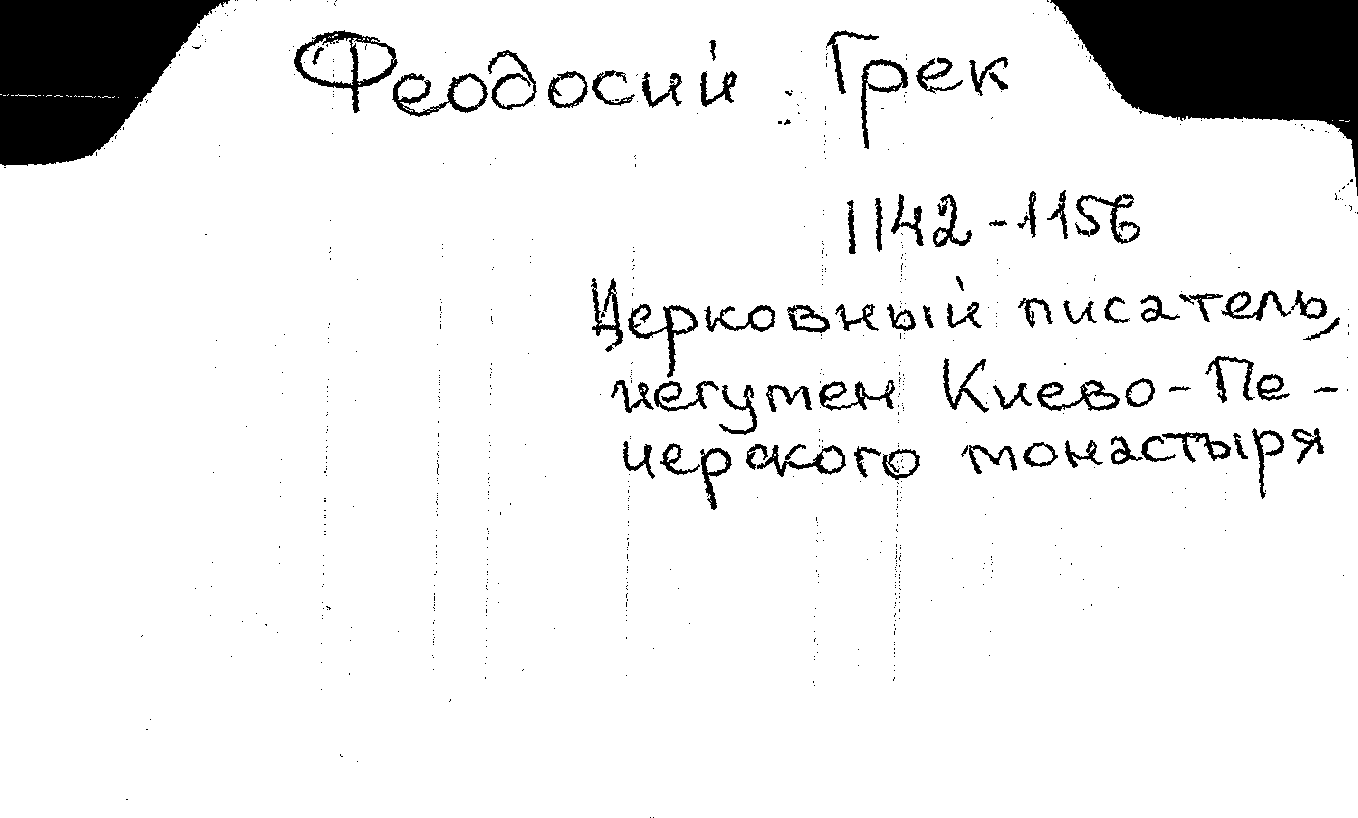 Феодосий Грек
1142-1156
Церковный писатель,
игумен Киево-Пе-
черского монастыря